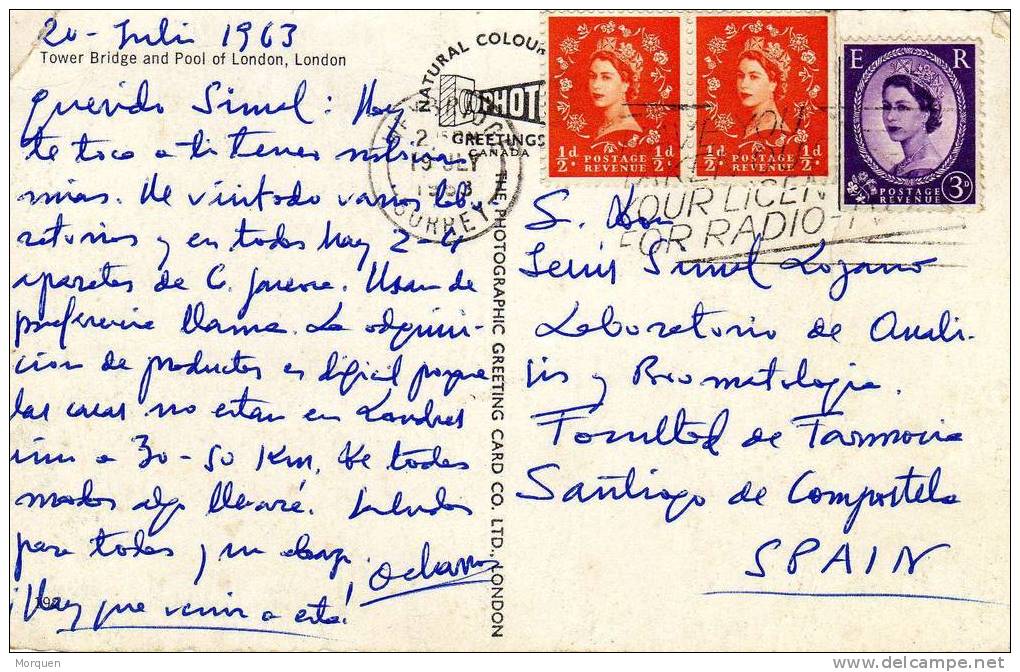 20 - Julio 1963
Tower Bridge and Pool of London, London
Querido Simal: Hoy
te toca a ti tener noticias
mias. He visitado varios labo-
ratorios y en todos hay 2-4
aparatos de C. gaseosa. Usan de
preferencia llama. La adquisi-
cion de productos es dificil porque
las casas no estan en Londres
sino a 30-50 Km, De todos
modos algo llevaré. Saludos
para todos y un abrazo
¡Hay que venir a esta!
NATURAL COLOUR
PHOT
GREETINGS
CANADA
19 JLY
1963
SURREY
THE PHOTOGRAPHIC GREETING CARD CO. LTD., LONDON
½d POSTAGE REVENUE ½d
½d POSTAGE REVENUE ½d
E R
POSTAGE REVENUE 3D
YOUR LICEN
FOR RADIO-
S. Don
Simal Lozano
Laboratorio de Anali-
sis y Bromatologia.
Facultad de Farmacia
Santiago de Compostela
SPAIN
Morquen
delcampe.net